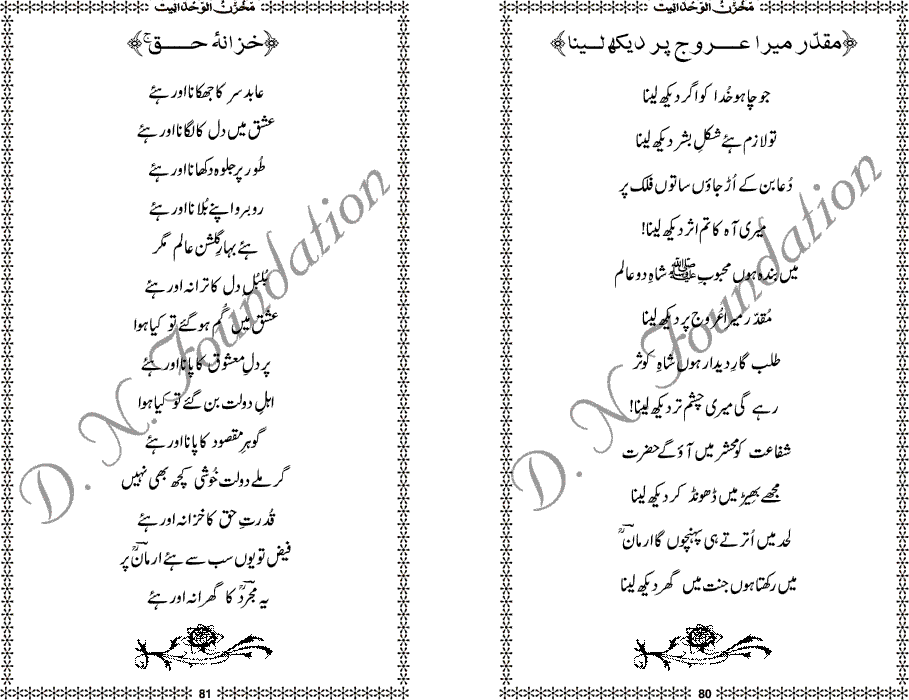 مخزن الوحدانیت
﴿مقدّر میرا عروج پر دیکھ لینا﴾
جو چاہو خُدا کو اگر دیکھ لینا
تو لازم ہئے شکلِ بشر دیکھ لینا
دُعا بن کے اُڑ جاؤں ساتوں فلک پر
میری آہ کا تم اثر دیکھ لینا!
میں بندہ ہوں محبوب ﷺ شاہِ دو عالم
مُقدّر میرا عُروج پر دیکھ لینا
طلب گارِ دیدار ہوں شاہِ کوثر
رہے گی میری چشمِ تر دیکھ لینا!
شفاعت کو محشر میں آؤ گے حضرت
مجھے بھیڑ میں ڈھونڈ کر دیکھ لینا
لحد میں اُترتے ہی پہنچوں گا ارمانؔ
میں رکھتا ہوں جنت میں گھر دیکھ لینا
80
مخزن الوحدانیت
﴿خزانۂ حق﴾
عابد سر کا جھکانا اور ہئے
عشق میں دل کا لگانا اور ہئے
طُور پر جلوہ دکھانا اور ہئے
روبرو اپنے بُلانا اور ہئے
ہئے بہارِ گلشنِ عالم مگر
بُلبُلِ دل کا ترانہ اور ہئے
عشق میں گُم ہو گئے تو کیا ہوا
پر دلِ معشوق کا پانا اور ہئے
اہلِ دولت بن گئے تو کیا ہوا
گوہرِ مقصود کا پانا اور ہئے
گر ملے دولت خُوشی کچھ بھی نہیں
قُدرتِ حق کا خزانہ اور ہئے
فیض تو یوں سب سے ہئے ارمانؔ پر
یہ مجردؔ کا گھرانہ اور ہئے
81
D. N. Foundation
D. N. Foundation